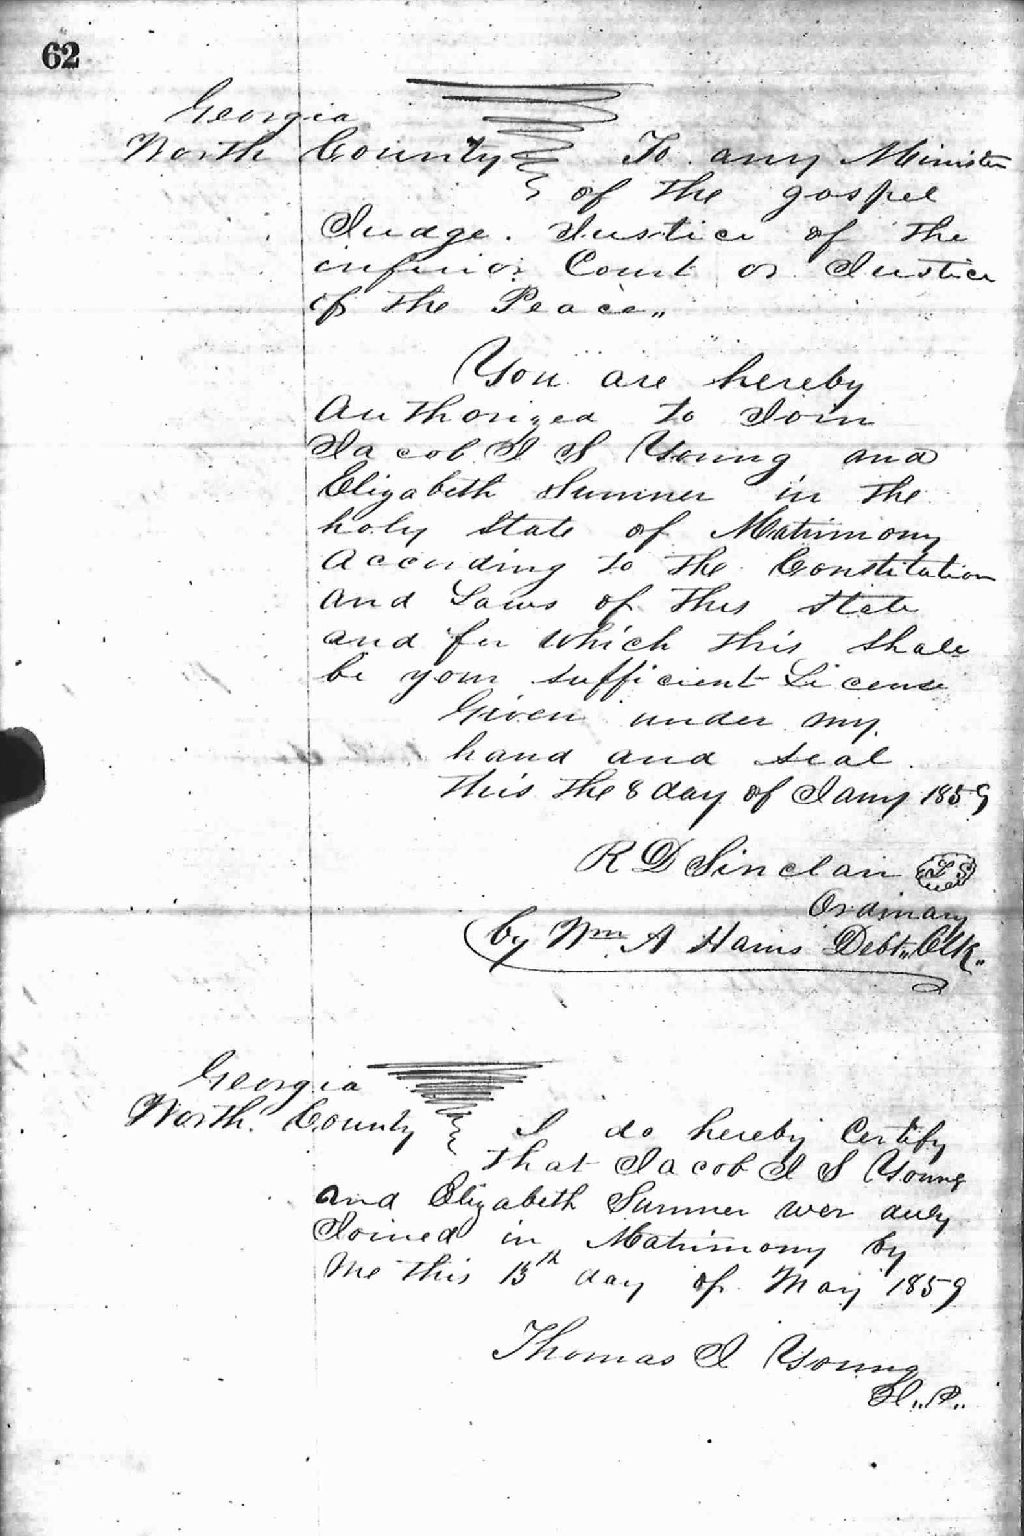 62
Georgia
Worth County To any Minister
of the gospel
Judge. Justice of the
inferior Court or Justice
of the Peace„
You are hereby
Authorized to Join
Jacob J S Young and
Elizabeth Sumner in the
holy State of Matrimony
According to the Constitution
and Laws of this State
and for which this shall
be your sufficient License
Given under my
hand and seal
this the 8 day of Jany 1859
R D Sinclair LS
Ordinary
by Wm A Harris Debt„ Clk„
Georgia
Worth County I do hereby Certify
that Jacob J S Young
and Elizabeth Sumner wer duly
Joined in Matrimony by
Me this 13th day of May 1859
Thomas J Young
J.P.